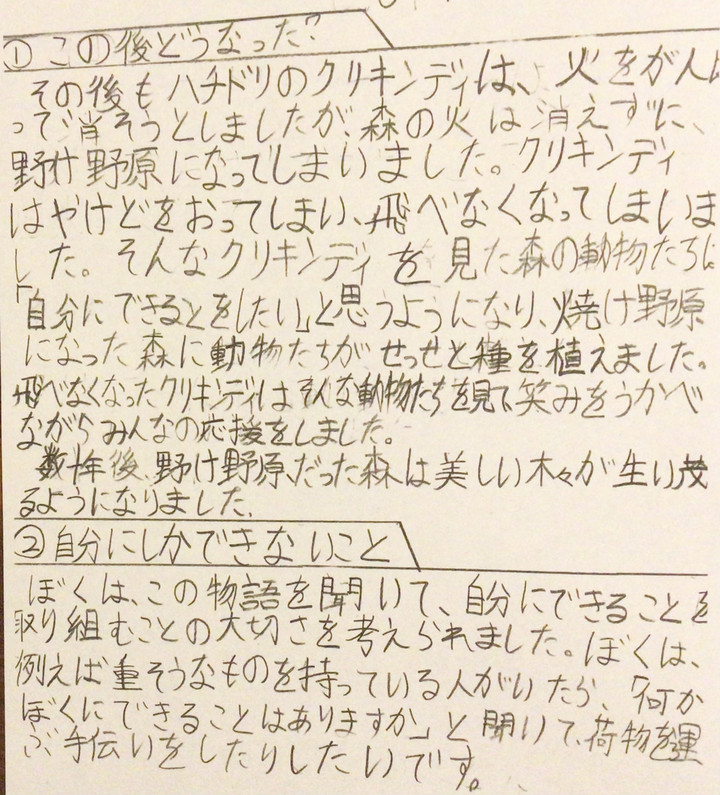 ① この後どうなった?
その後もハチドリのクリキンディは、火をがんば
って消そうとしましたが、森の火は消えずに、
野け野原になってしまいました。クリキンディ
はやけどをおってしまい、飛べなくなってしまいま
した。そんなクリキンディを見た森の動物たちは
「自分にできるとをしたい」と思うようになり、焼け野原
になった森に動物たちがせっせと種を植えました。
飛べなくなったクリキンディはそんな動物たちを見て笑みをうかべ
ながらみんなの応援をしました。
数十年後、野け野原だった森は美しい木々が生い茂
るようになりました。
② 自分にしかできないこと
ぼくは、この物語を聞いて、自分にできることを
取り組むことの大切さを考えられました。ぼくは、
例えば重そうなものを持っている人がいたら、「何か
ぼくにできることはありますか」と聞いて、荷物を運
ぶ手伝いをしたりしたいです。